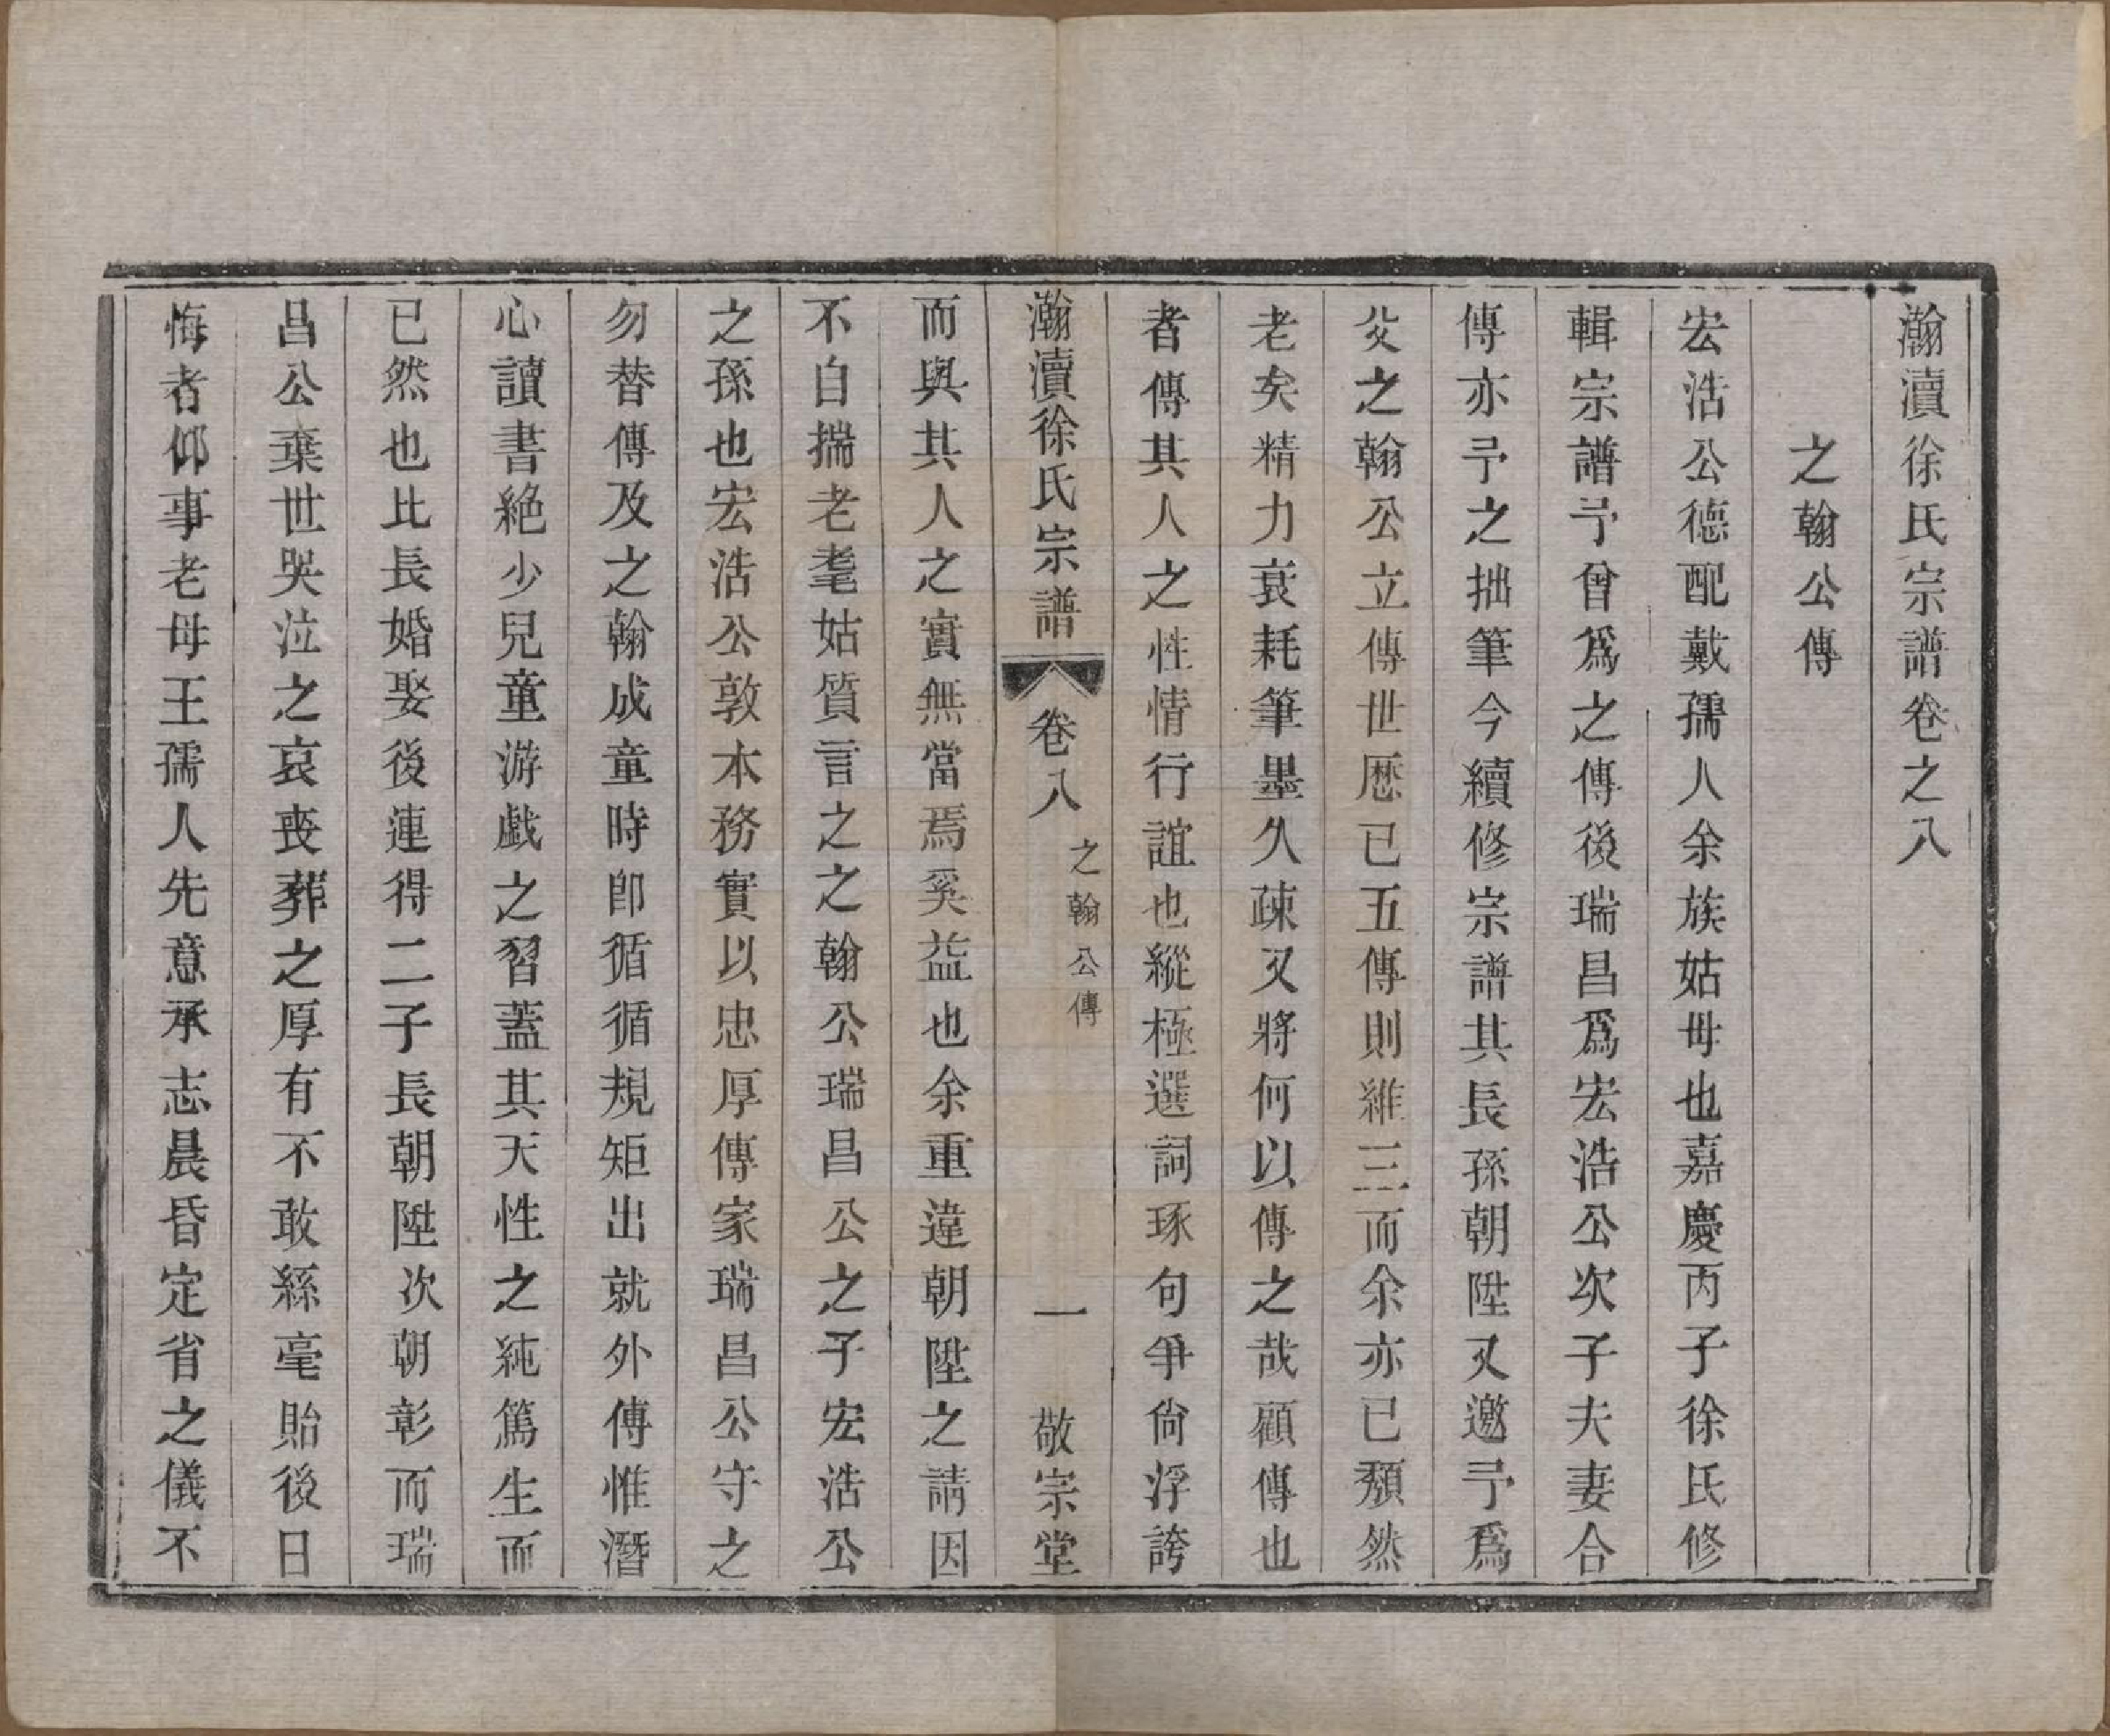 瀚瀆徐氏宗譜卷之八
之翰公傳
宏浩公德配戴孺人余族姑母也嘉慶丙子徐氏修
輯宗譜予曾爲之傳後瑞昌爲宏浩公次子夫妻合
傳亦予之拙筆今續修宗譜其長孫朝陞又邀予爲
父之翰公立傳世歷已五傳則維三而余亦已頹然
老矣精力衰耗筆墨久疎又將何以傳之哉顧傳也
者傳其人之性情行誼也縱極選詞琢句爭尙浮誇
瀚瀆徐氏宗譜 卷八 之翰公傳 一 敬宗堂
而與其人之實無當焉奚益也余重違朝陞之請因
不自揣老耄姑質言之之翰公瑞昌公之子宏浩公
之孫也宏浩公敦本務實以忠厚傳家瑞昌公守之
勿替傳及之翰成童時卽循循規矩出就外傅惟潛
心讀書絕少兒童游戲之習蓋其天性之純篤生而
已然也比長婚娶後連得二子長朝陞次朝彰而瑞
昌公棄世哭泣之哀喪葬之厚有不敢絲毫貽後日
悔者仰事老母王孺人先意承志晨昏定省之儀不